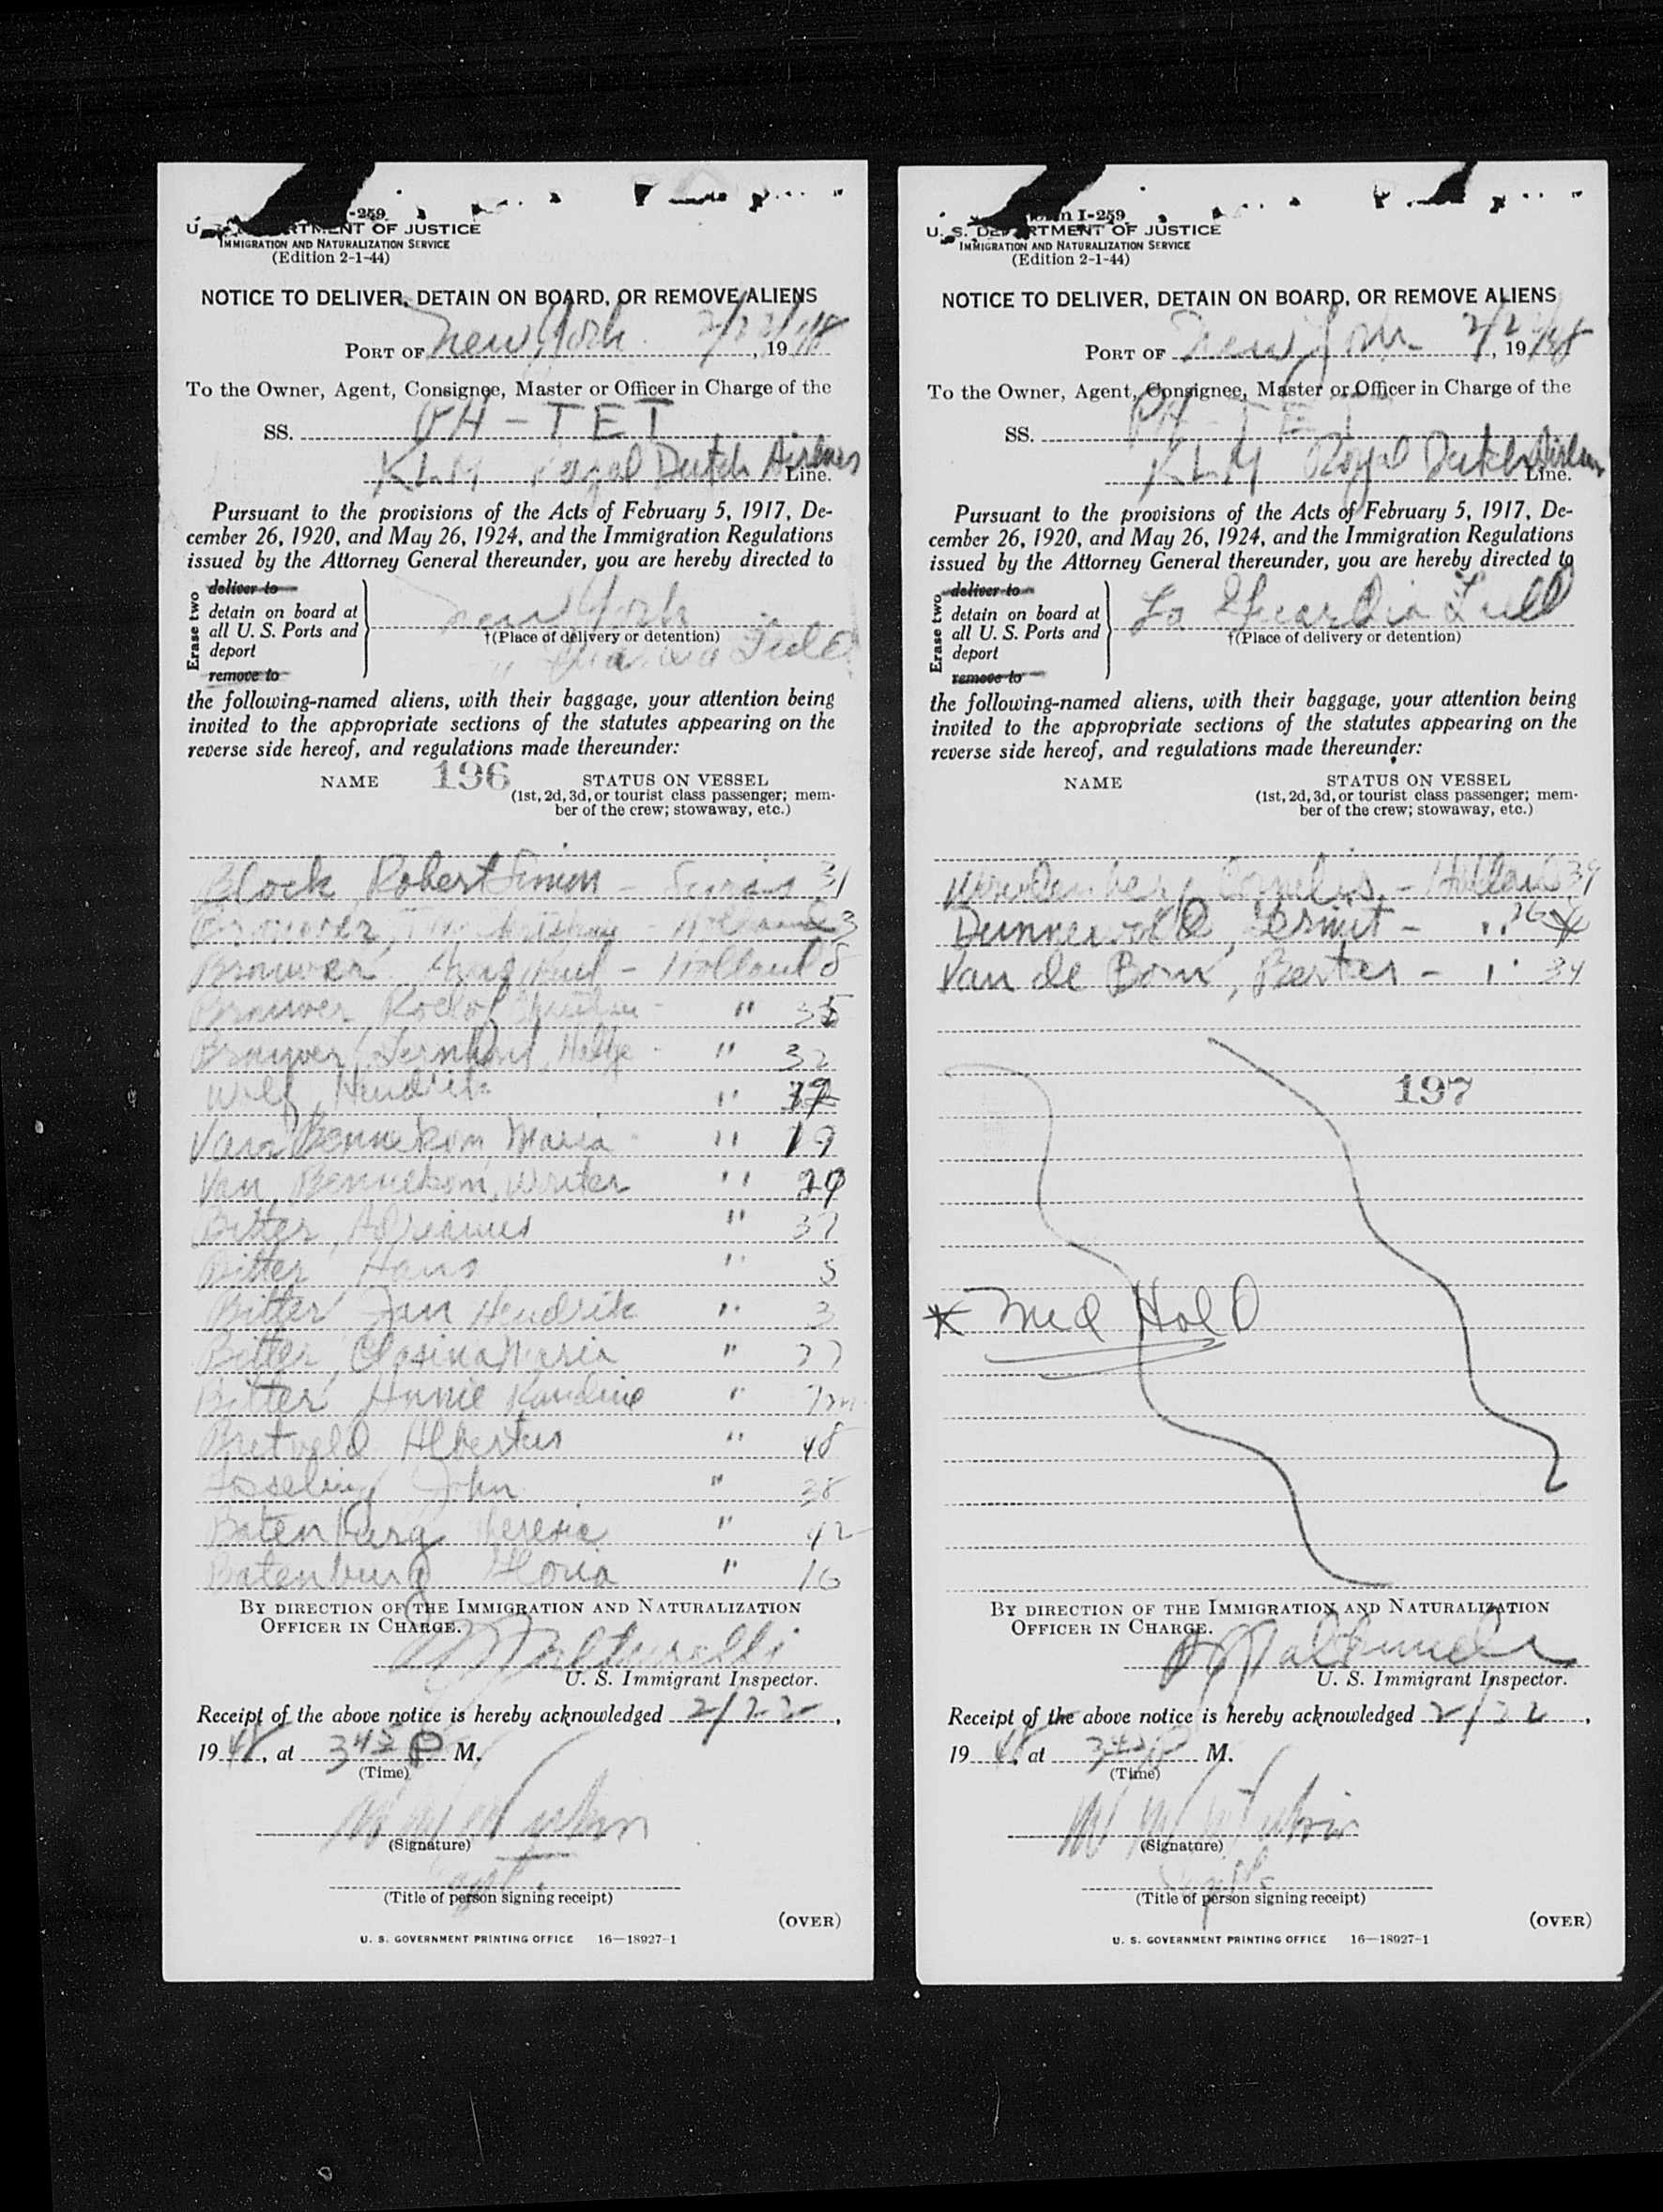 -259
U. S. DEPARTMENT OF JUSTICE
IMMIGRATION AND NATURALIZATION SERVICE
(Edition 2-1-44)
NOTICE TO DELIVER, DETAIN ON BOARD, OR REMOVE ALIENS
PORT OF New York 2/22/, 1948
To the Owner, Agent, Consignee, Master or Officer in Charge of the
SS. PH-TET
KLM Royal Dutch Airlines Line.
Pursuant to the provisions of the Acts of February 5, 1917, De-
cember 26, 1920, and May 26, 1924, and the Immigration Regulations
issued by the Attorney General thereunder, you are hereby directed to
Erase two
deliver to
detain on board at
all U. S. Ports and
deport
remove to
New York
†(Place of delivery or detention)
Guardia Field
the following-named aliens, with their baggage, your attention being
invited to the appropriate sections of the statutes appearing on the
reverse side hereof, and regulations made thereunder:
NAME 196 STATUS ON VESSEL
(1st, 2d, 3d, or tourist class passenger; mem-
ber of the crew; stowaway, etc.)
Block, Robert Simon - 31
Brouwer, - Holland 3
Brouwer - Holland 8
Brouwer, Roelof - " 35
Brouwer, - " 32
Hendrik "
Van Bennekom, Maria - " 19
Van Bennekom, Wouter "
Bitter, Adrianus " 37
Bitter Hans " 5
Bitter, Jan Hendrik " 3
Bitter, Clasina Maria "
Bitter, Annie "
Albertus " 48
John " 38
Batenburg Theresia " 42
Batenburg Gloria " 16
BY DIRECTION OF THE IMMIGRATION AND NATURALIZATION
OFFICER IN CHARGE.
U. S. Immigrant Inspector.
Receipt of the above notice is hereby acknowledged 2/22,
1948, at 3 45 P M.
(Time)
(Signature)
Capt.
(Title of person signing receipt)
(OVER)
U. S. GOVERNMENT PRINTING OFFICE 16—18927-1
Form I-259
U. S. DEPARTMENT OF JUSTICE
IMMIGRATION AND NATURALIZATION SERVICE
(Edition 2-1-44)
NOTICE TO DELIVER, DETAIN ON BOARD, OR REMOVE ALIENS
PORT OF New York 2/22/, 1948
To the Owner, Agent, Consignee, Master or Officer in Charge of the
SS. PH-TET
KLM Royal Dutch Airlines Line.
Pursuant to the provisions of the Acts of February 5, 1917, De-
cember 26, 1920, and May 26, 1924, and the Immigration Regulations
issued by the Attorney General thereunder, you are hereby directed to
Erase two
deliver to
detain on board at
all U. S. Ports and
deport
remove to
La Guardia Field
†(Place of delivery or detention)
the following-named aliens, with their baggage, your attention being
invited to the appropriate sections of the statutes appearing on the
reverse side hereof, and regulations made thereunder:
NAME STATUS ON VESSEL
(1st, 2d, 3d, or tourist class passenger; mem-
ber of the crew; stowaway, etc.)
Cornelis - Holland 39
Dunnewold, Gerrit - " 26 *
Van de Born, - " 34
197
* Med Hold
BY DIRECTION OF THE IMMIGRATION AND NATURALIZATION
OFFICER IN CHARGE.
U. S. Immigrant Inspector.
Receipt of the above notice is hereby acknowledged 2/22,
1948, at 3 45 P M.
(Time)
(Signature)
Capt.
(Title of person signing receipt)
(OVER)
U. S. GOVERNMENT PRINTING OFFICE 16—18927-1